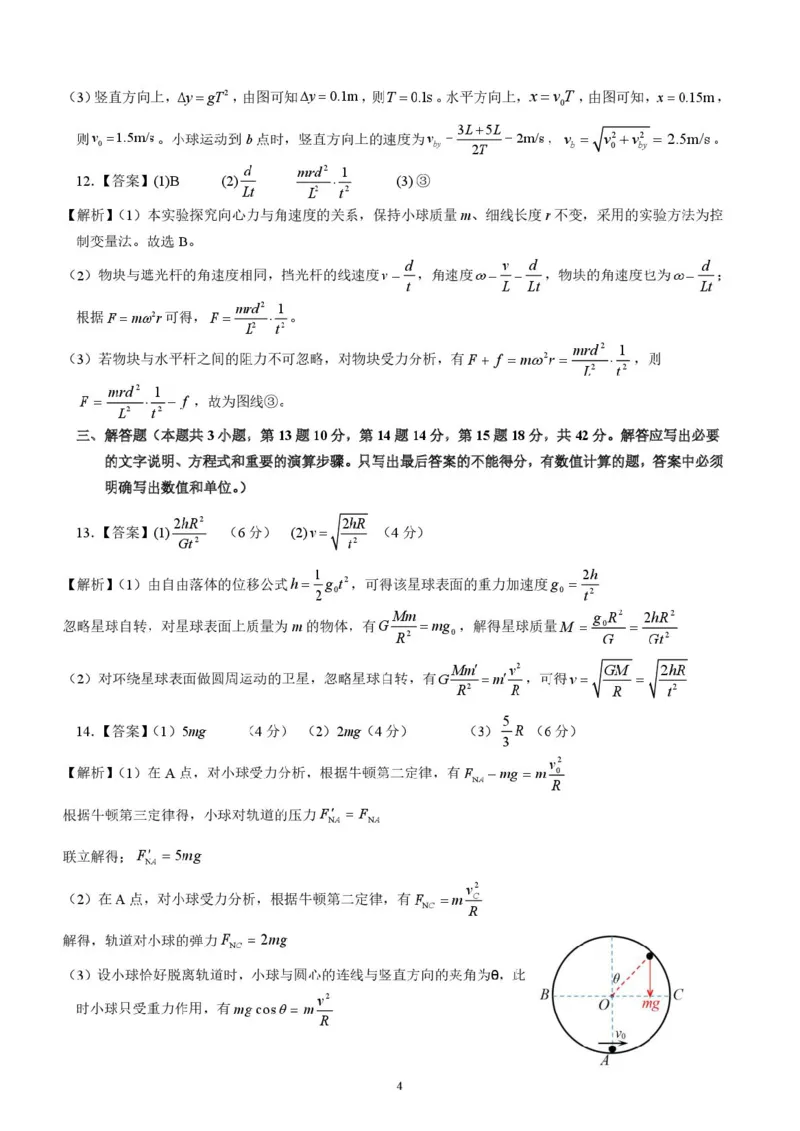 (3)竖直方向上，Δy=gT²，由图可知Δy=0.1m，则T=0.1s。水平方向上，x=v₀T，由图可知，x=0.15m，
则v₀=1.5m/s。小球运动到b点时，竖直方向上的速度为v_by=(3L+5L)/(2T)=2m/s，v_b=√(v₀²+v_by²)=2.5m/s。
12.【答案】(1)B (2) d/(Lt) mrd²/L²·1/t² (3)③
【解析】（1）本实验探究向心力与角速度的关系，保持小球质量m、细线长度r不变，采用的实验方法为控
制变量法。故选B。
（2）物块与遮光杆的角速度相同，挡光杆的线速度v=d/t，角速度ω=v/L=d/(Lt)，物块的角速度也为ω=d/(Lt)；
根据F=mω²r可得，F=mrd²/L²·1/t²。
（3）若物块与水平杆之间的阻力不可忽略，对物块受力分析，有F+f=mω²r=mrd²/L²·1/t²，则
F=mrd²/L²·1/t²−f，故为图线③。
三、解答题（本题共3小题，第13题10分，第14题14分，第15题18分，共42分。解答应写出必要
的文字说明、方程式和重要的演算步骤。只写出最后答案的不能得分，有数值计算的题，答案中必须
明确写出数值和单位。）
13.【答案】(1) 2hR²/(Gt²) （6分） (2)v=√(2hR/t²) （4分）
【解析】（1）由自由落体的位移公式h=1/2 g₀t²，可得该星球表面的重力加速度g₀=2h/t²
忽略星球自转，对星球表面上质量为m的物体，有G Mm/R²=mg₀，解得星球质量M=g₀R²/G=2hR²/(Gt²)
（2）对环绕星球表面做圆周运动的卫星，忽略星球自转，有G Mm′/R²=m′ v²/R，可得v=√(GM/R)=√(2hR/t²)
14.【答案】（1）5mg （4分）（2）2mg（4分） （3）5/3 R（6分）
【解析】（1）在A点，对小球受力分析，根据牛顿第二定律，有F_NA−mg=m v₀²/R
根据牛顿第三定律得，小球对轨道的压力F′_NA=F_NA
联立解得；F′_NA=5mg
（2）在A点，对小球受力分析，根据牛顿第二定律，有F_NC=m v_C²/R
解得，轨道对小球的弹力F_NC=2mg
（3）设小球恰好脱离轨道时，小球与圆心的连线与竖直方向的夹角为θ，此
时小球只受重力作用，有mg cosθ=m v²/R
θ
B
O
mg
C
v₀
A
4